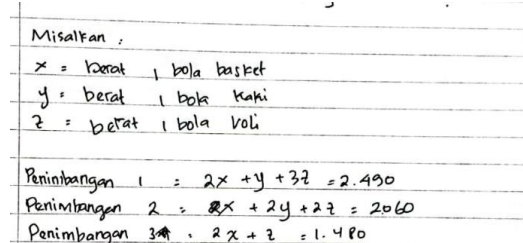 Misalkan :
x = berat 1 bola basket
y = berat 1 bola kaki
z = berat 1 bola voli
Penimbangan 1 : 2x + y + 3z = 2.490
Penimbangan 2 : x + 2y + 2z = 2060
Penimbangan 3 : 2x + z = 1.480